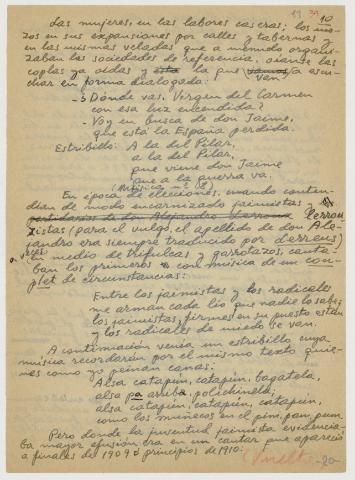 10
las mujeres, en las labores caseras; los mo-
zos en sus expansiones por calles y tabernas y
en las mismas veladas que a menudo organi-
zaban las sociedades de referencia, oíanse las
coplas ya oídas y esta la que vamos van a escu-
char en forma dialogada:
- ¿Dónde vas, Virgen del Carmen
con esa luz encendida?
- Voy en busca de don Jaime,
que está la España perdida.
Estribillo: A la del Pilar,
a la del Pilar,
que viene don Jaime
que a la guerra va.
(Música nº 2)
En época de elecciones, cuando conten-
dían de modo encarnizado jaimistas y
partidarios de don Alejandro Lerroux Lerrou-
xistas (para el vulgo, el apellido de don Ale-
jandro era siempre traducido por derreus)
a veces en medio de trifulcas y garrotazos, canta-
ban los primeros con música de un con-
plet de circunstancias:
Entre los jaimistas y los radicales
me arman cada lío que nadie lo sabe;
los jaimistas, firmes en su puesto están
y los radicales de miedo se van.
A continuación venía un estribillo cuya
música recordarán por el mismo texto quie-
nes como yo peinan canas:
Alsa catapún, catapún, bagatela,
alsa pa arriba, polichinela;
alsa catapún, catapún, catapún,
como los muñecos en el pim, pam, pum.
Pero donde la juventud jaimista evidencia-
ba mayor efusión era en un cantar que apareció
a finales de 1909 ó principios de 1910:
-20-